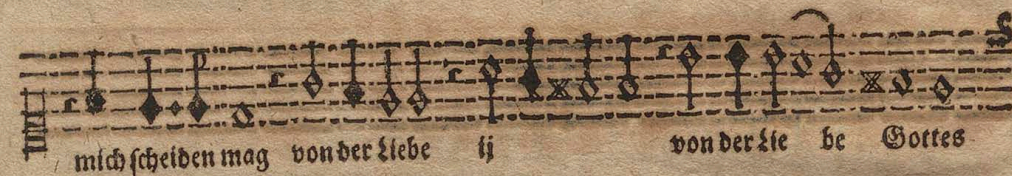 mich ſcheiden mag von der Liebe ij von der Lie be Gottes